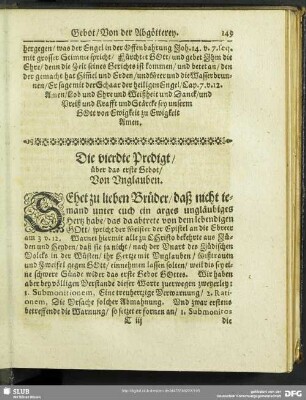 Gebot/ Von der Abgötterey. 149
hergegen/ was der Engel in der Offenbahrung Joh. 14. v. 7. seq.
mit grosser Stimme spricht/ Fürchtet GOtt/ und gebet Ihm die
Ehre/ denn die Zeit seines Gerichts ist kommen/ und betet an/ den
der gemacht hat Himmel und Erden/ und Meer und die Wasserbrun-
nen/ Er sage mit der Schaar der heiligen Engel/ Cap. 7. v. 12.
Amen/ Lob und Ehre und Weißheit und Danck/ und
Preiß und Krafft und Stärcke sey unserm
GOtt von Ewigkeit zu Ewigkeit
Amen.
Die vierdte Predigt/
über das erste Gebot/
Von Unglauben.
SEhet zu lieben Brüder/ daß nicht ie-
mand unter euch ein arges ungläubiges
Hertz habe/ das da abtrete von dem lebendigen
GOtt/ spricht der Meister der Epistel an die Ebreer
am 3 v. 12. Warnet hiermit alle zu Christo bekehrte aus Jü-
den und Heyden/ daß sie ja nicht/ nach der Unart des Jüdischen
Volks in der Wüsten/ ihr Hertz mit Unglauben/
und Zweifel gegen GOtt/ einnehmen lassen solten/ weil diß sey ei-
ne schwere Sünde wider das erste Gebot GOttes. Wir haben
aber bey völligem Verstande dieser Worte zuerwegen zweyerley:
1. Submonitionem, Eine treuhertzige Verwarnung/ 2. Rati-
onem, Die Ursache solcher Admahnung. Und zwar erstens
betreffende die Warnung/ so setzet er fornen an/ 1. Submonitos
T iij die
SLUB